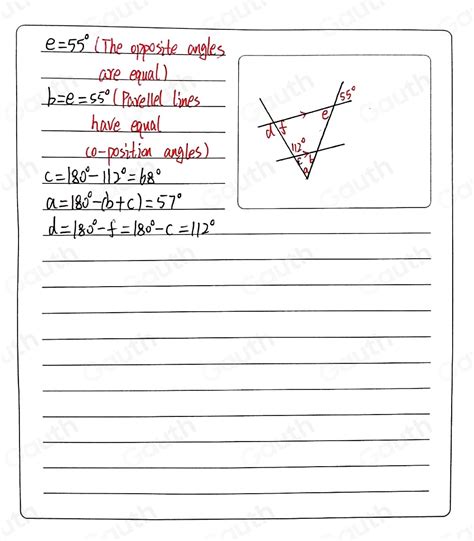 e=55° (The opposite angles
are equal)
b=e=55° (Parellel lines
have equal
co-position angles)
c=180°-112°=68°
a=180°-(b+c)=57°
d=180°-f=180°-c=112°
55°
e
d f
112°
c b
a
Gauth